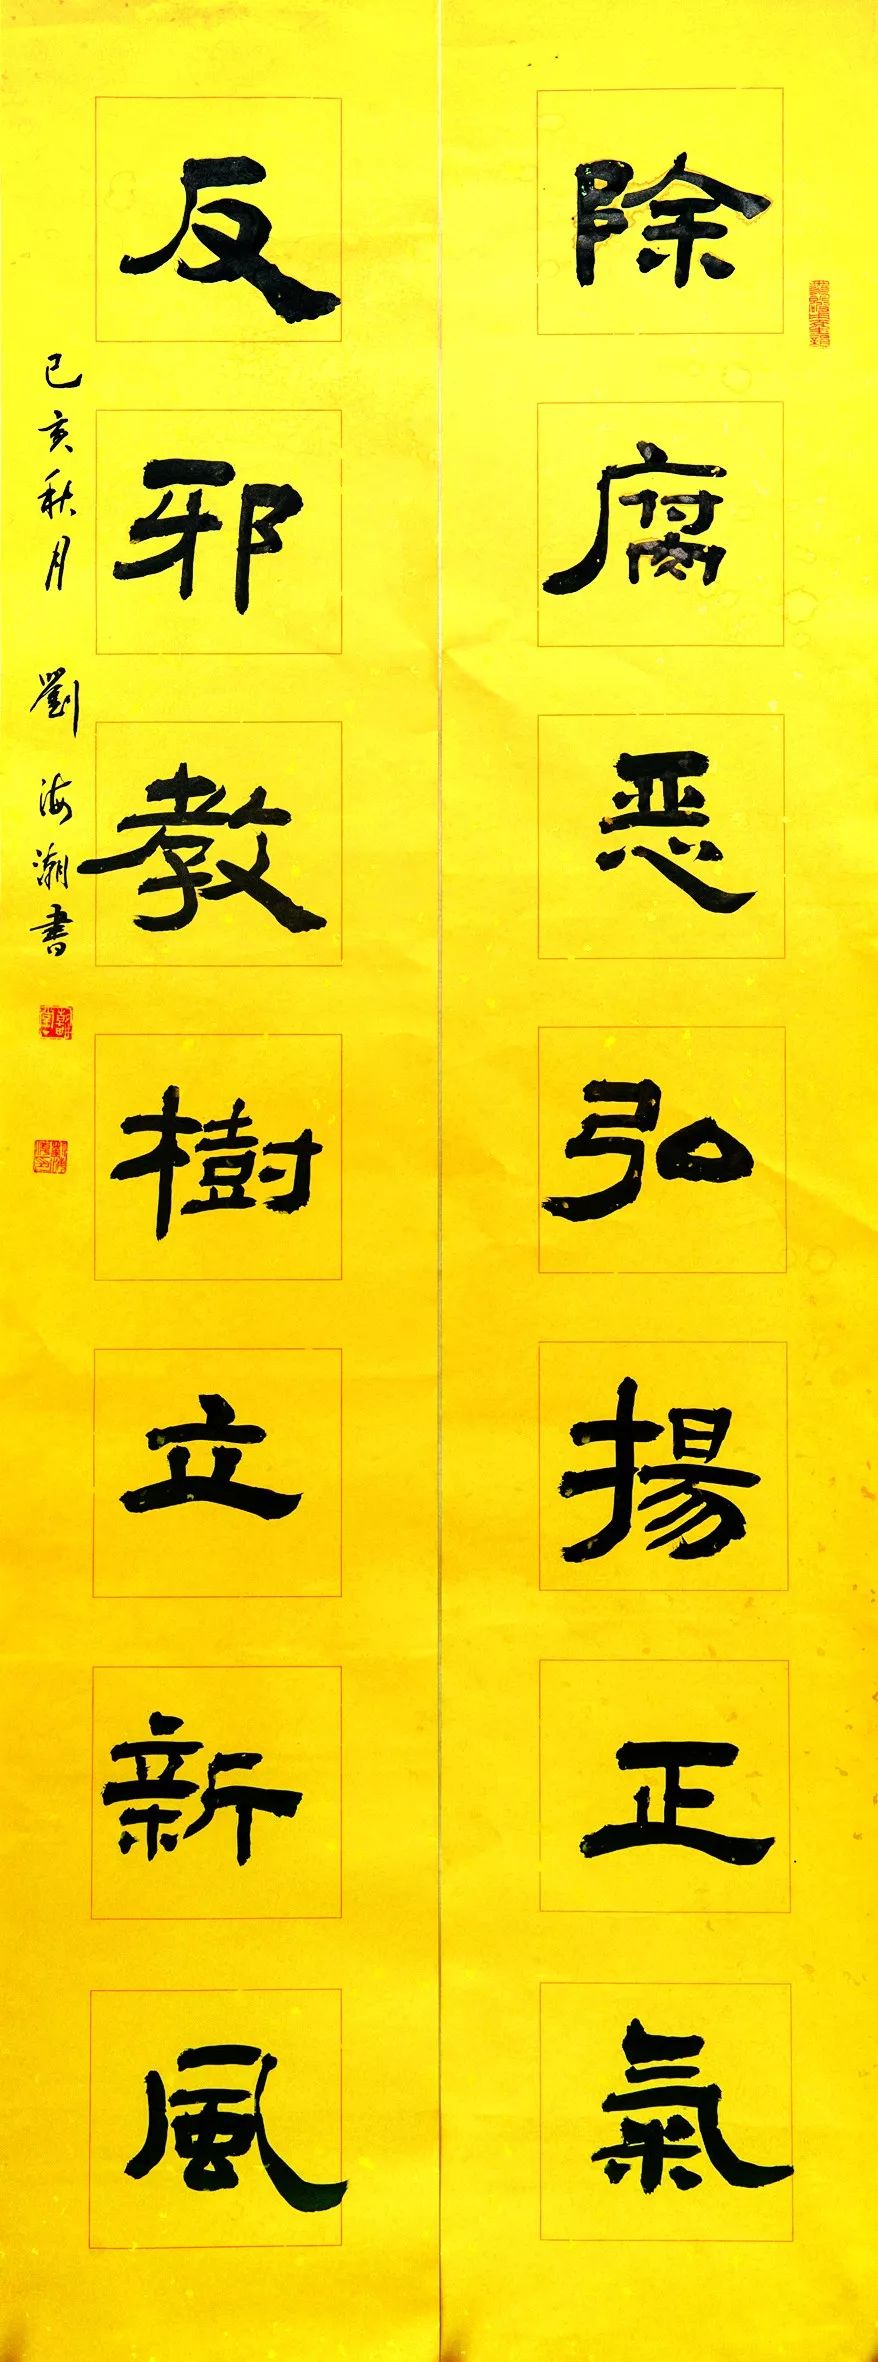 除腐恶弘揚正氣
反邪教樹立新風
己亥秋月 劉海潮書